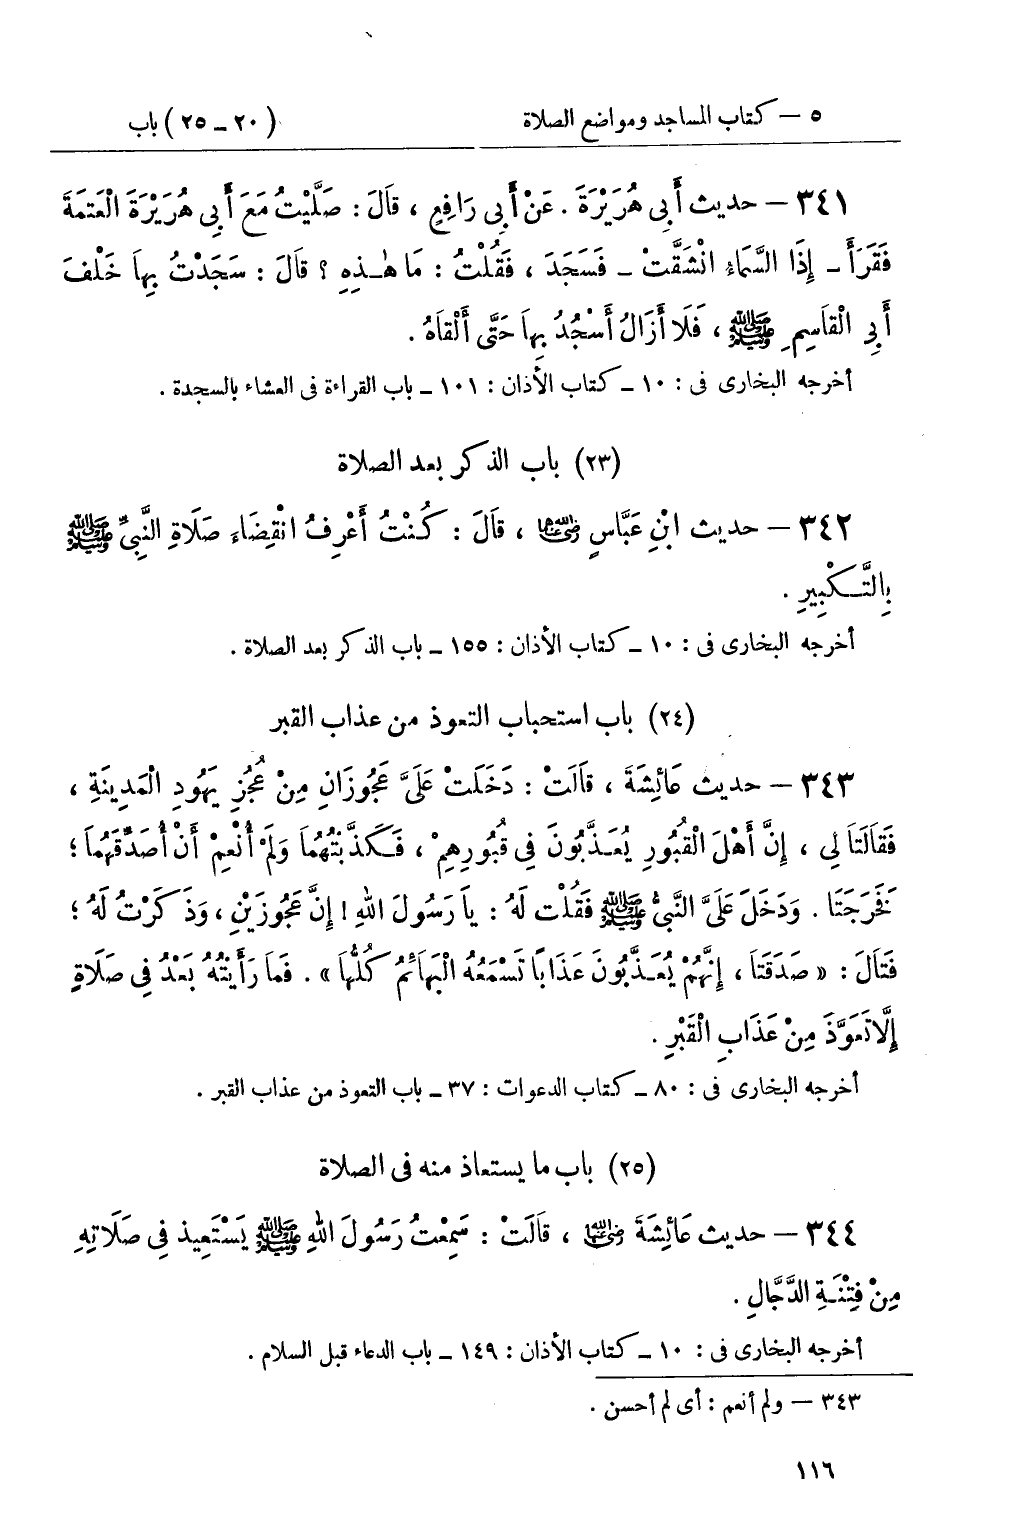 ٥ – كتاب المساجد ومواضع الصلاة (٢٠ – ٢٥) باب
٣٤١ – حديث أَبِي هُرَيْرَةَ . عَنْ أَبِي رَافِعٍ ، قَالَ : صَلَّيْتُ مَعَ أَبِي هُرَيْرَةَ الْعَتَمَةَ
فَقَرَأَ – إِذَا السَّمَاءُ انْشَقَّتْ – فَسَجَدَ ، فَقُلْتُ : مَا هٰذِهِ ؟ قَالَ : سَجَدْتُ بِهَا خَلْفَ
أَبِي الْقَاسِمِ ﷺ ، فَلَا أَزَالُ أَسْجُدُ بِهَا حَتَّى أَلْقَاهُ .
أخرجه البخارى فى : ١٠ – كتاب الأذان : ١٠١ – باب القراءة فى العشاء بالسجدة .
(٢٣) باب الذكر بعد الصلاة
٣٤٢ – حديث ابْنِ عَبَّاسٍ رضي الله عنهما ، قَالَ : كُنْتُ أَعْرِفُ انْقِضَاءَ صَلَاةِ النَّبِيِّ ﷺ
بِالتَّكْبِيرِ .
أخرجه البخارى فى : ١٠ – كتاب الأذان : ١٥٥ – باب الذكر بعد الصلاة .
(٢٤) باب استحباب التعوذ من عذاب القبر
٣٤٣ – حديث عَائِشَةَ ، قَالَتْ : دَخَلَتْ عَلَيَّ عَجُوزَانِ مِنْ عُجُزِ يَهُودِ الْمَدِينَةِ ،
فَقَالَتَا لِي ، إِنَّ أَهْلَ الْقُبُورِ يُعَذَّبُونَ فِي قُبُورِهِمْ ، فَكَذَّبْتُهُمَا وَلَمْ أُنْعِمْ أَنْ أُصَدِّقَهُمَا ؛
فَخَرَجَتَا . وَدَخَلَ عَلَيَّ النَّبِيُّ ﷺ فَقُلْتُ لَهُ : يَا رَسُولَ اللهِ ! إِنَّ عَجُوزَيْنِ ، وَذَكَرْتُ لَهُ ؛
فَقَالَ : « صَدَقَتَا ، إِنَّهُمْ يُعَذَّبُونَ عَذَابًا تَسْمَعُهُ الْبَهَائِمُ كُلُّهَا » . فَمَا رَأَيْتُهُ بَعْدُ فِي صَلَاةٍ
إِلَّا تَعَوَّذَ مِنْ عَذَابِ الْقَبْرِ .
أخرجه البخارى فى : ٨٠ – كتاب الدعوات : ٣٧ – باب التعوذ من عذاب القبر .
(٢٥) باب ما يستعاذ منه فى الصلاة
٣٤٤ – حديث عَائِشَةَ رضي الله عنها ، قَالَتْ : سَمِعْتُ رَسُولَ اللهِ ﷺ يَسْتَعِيذُ فِي صَلَاتِهِ
مِنْ فِتْنَةِ الدَّجَّالِ .
أخرجه البخارى فى : ١٠ – كتاب الأذان : ١٤٩ – باب الدعاء قبل السلام .
٣٤٣ – ولم أنعم : أى لم أحسن .
١١٦